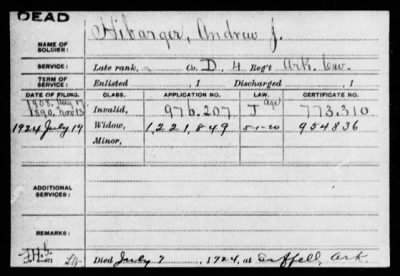 DEAD
NAME OF SOLDIER: Hibarger, Andrew J.
SERVICE: Late rank, Co. D, 4 Reg't Ark. Cav.
TERM OF SERVICE: Enlisted , 1 Discharged , 1
DATE OF FILING. CLASS. APPLICATION NO. LAW. CERTIFICATE NO.
1908. Aug 17
1890. Nov 13 Invalid, 976.207 J Age 773.310
1924 July 14 Widow, 1,221,849 5-1-20 954836
Minor,
ADDITIONAL SERVICES:
REMARKS:
Died July 7, 1924, at Ark.